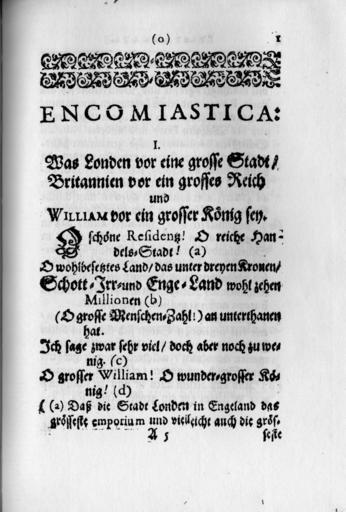 (o) 1
ENCOMIASTICA:
I.
Was Londen vor eine grosse Stadt/
Britannien vor ein grosses Reich
und
WILLIAM vor ein grosser König sey.
O schöne Residentz! O reiche Han-
dels-Stadt! (a)
O wohlbesetztes Land/das unter dreyen Kronen/
Schott-Irr-und Enge-Land wohl zehen
Millionen (b)
(O grosse Menschen-Zahl!) an unterthanen
hat.
Ich sage zwar sehr viel/ doch aber noch zu we-
nig. (c)
O grosser William! O wunder-grosser Kö-
nig! (d)
(a) Daß die Stadt Londen in Engeland das
grösseste emporium und vielleicht auch die grös-
A 5 seste